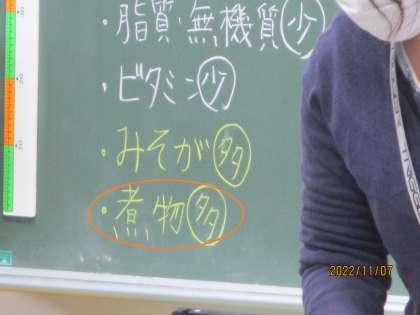 ・脂質・無機質少
・ビタミン少
・みそが多
・煮物多
2022/11/07